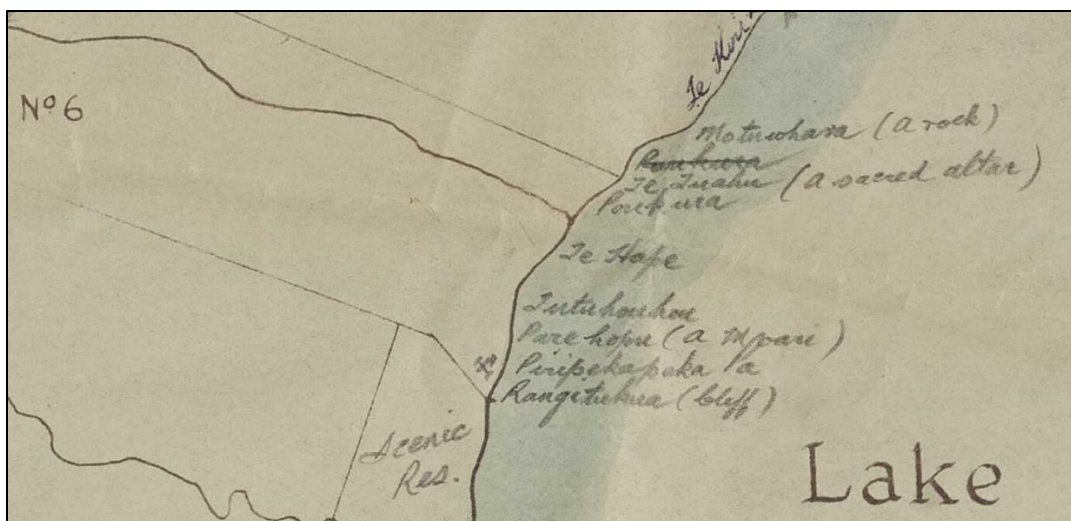 Te
No 6
Motuwhara (a rock)
Poukura
Te Tuahu (a sacred altar)
Poukura
Te Hope
Tutuhouhou
Pare hopu (a
Piripekapeka Pa
Rangitukua (bluff)
Scenic
Res.
Lake